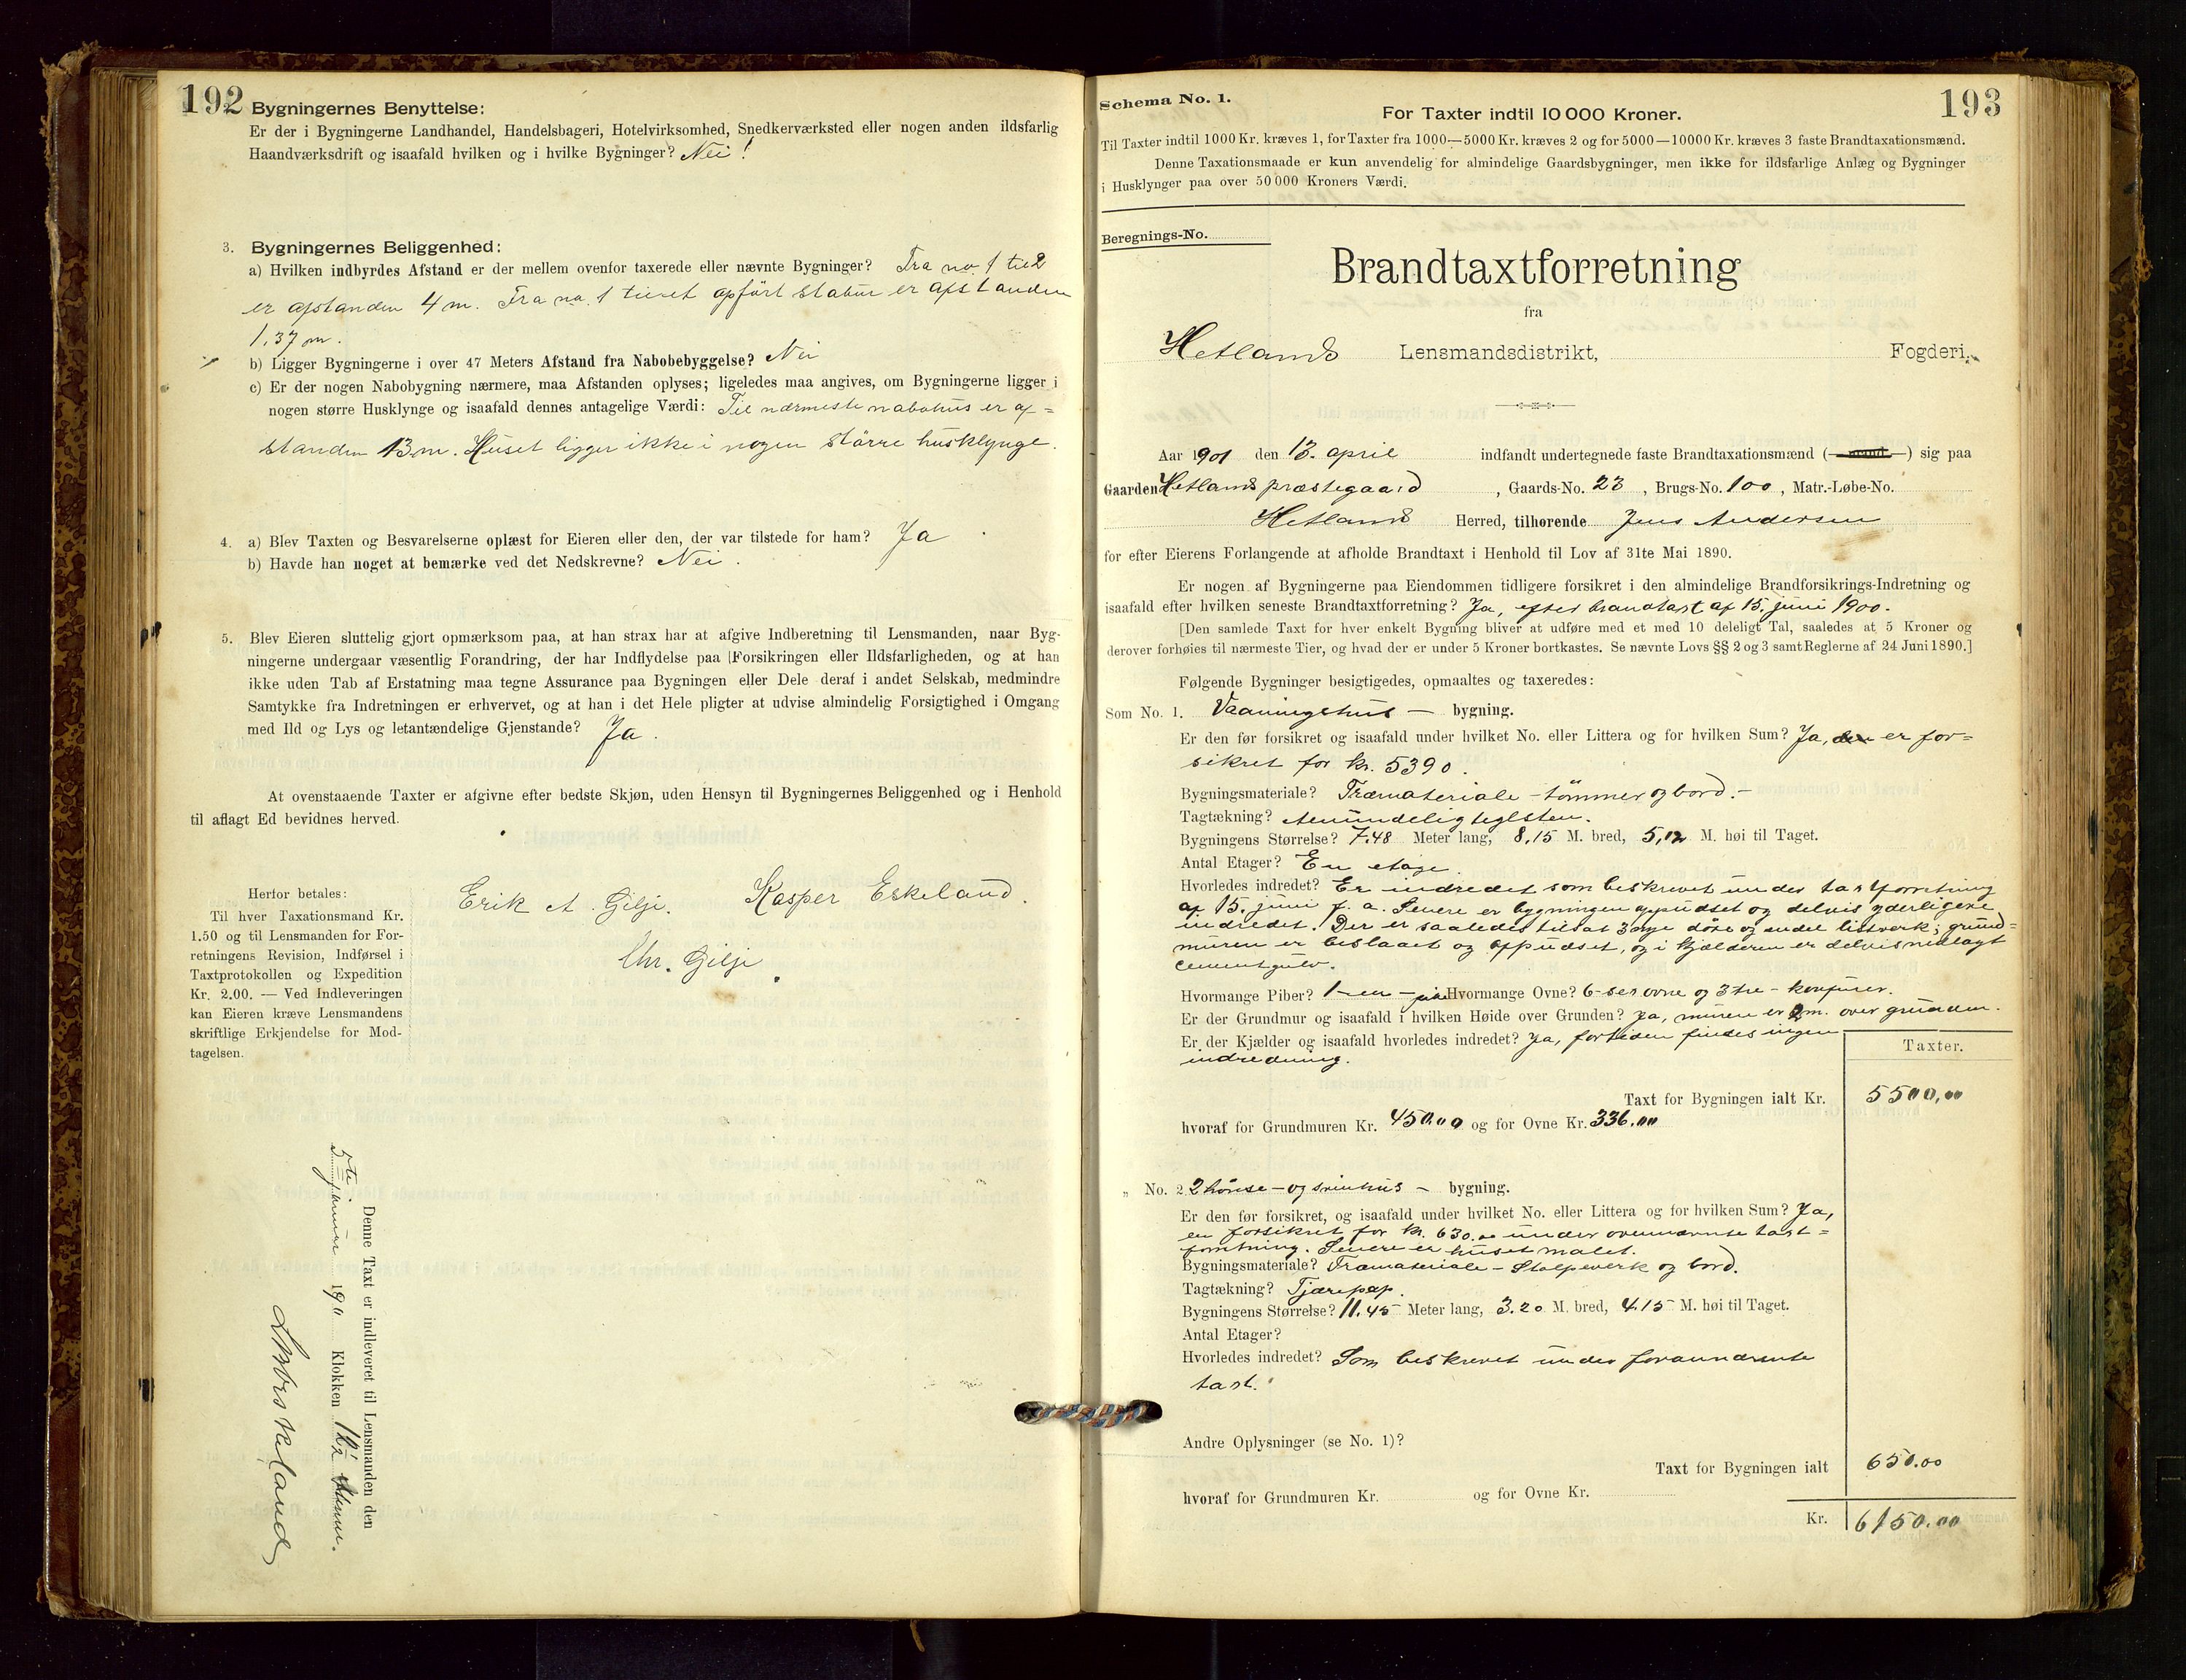 192
Bygningernes Benyttelse:
Er der i Bygningerne Landhandel, Handelsbageri, Hotelvirksomhed, Snedkerværksted eller nogen anden ildsfarlig
Haandværksdrift og isaafald hvilken og i hvilke Bygninger? Nei!
3. Bygningernes Beliggenhed:
a) Hvilken indbyrdes Afstand er der mellem ovenfor taxerede eller nævnte Bygninger? Fra no. 1 til 2
er afstanden 4 m. Fra no. 1 til et opført stabur er afstanden
1,37 m.
b) Ligger Bygningerne i over 47 Meters Afstand fra Nabobebyggelse? Nei
c) Er der nogen Nabobygning nærmere, maa Afstanden oplyses; ligeledes maa angives, om Bygningerne ligger i
nogen større Husklynge og isaafald dennes antagelige Værdi: Til nærmeste nabohus er af=
standen 13 m. Huset ligger ikke i nogen større husklynge.
4. a) Blev Taxten og Besvarelserne oplæst for Eieren eller den, der var tilstede for ham? Ja
b) Havde han noget at bemærke ved det Nedskrevne? Nei.
5. Blev Eieren sluttelig gjort opmærksom paa, at han strax har at afgive Indberetning til Lensmanden, naar Byg-
ningerne undergaar væsentlig Forandring, der har Indflydelse paa Forsikringen eller Ildsfarligheden, og at han
ikke uden Tab af Erstatning maa tegne Assurance paa Bygningen eller Dele deraf i andet Selskab, medmindre
Samtykke fra Indretningen er erhvervet, og at han i det Hele pligter at udvise almindelig Forsigtighed i Omgang
med Ild og Lys og letantændelige Gjenstande? Ja.
At ovenstaaende Taxter er afgivne efter bedste Skjøn, uden Hensyn til Bygningernes Beliggenhed og i Henhold
til aflagt Ed bevidnes herved.
Erik A. Gilje. Kasper Eskeland.
Chr. Gilje.
Herfor betales:
Til hver Taxationsmand Kr.
1.50 og til Lensmanden for For-
retningens Revision, Indførsel i
Taxtprotokollen og Expedition
Kr. 2.00. — Ved Indleveringen
kan Eieren kræve Lensmandens
skriftlige Erkjendelse for Mod-
tagelsen.
Denne Taxt er indleveret til Lensmanden den
5te 190 Klokken 12½
193
Schema No. 1.
For Taxter indtil 10 000 Kroner.
Til Taxter indtil 1000 Kr. kræves 1, for Taxter fra 1000—5000 Kr. kræves 2 og for 5000—10000 Kr. kræves 3 faste Brandtaxationsmænd.
Denne Taxationsmaade er kun anvendelig for almindelige Gaardsbygninger, men ikke for ildsfarlige Anlæg og Bygninger
i Husklynger paa over 50 000 Kroners Værdi.
Beregnings-No.
Brandtaxtforretning
fra
Hetlands Lensmandsdistrikt, Fogderi.
Aar 1901 den 13. april indfandt undertegnede faste Brandtaxationsmænd (—mand—) sig paa
Gaarden Hetlands præstegaard, Gaards-No. 23, Brugs-No. 100, Matr.-Løbe-No.
Hetland Herred, tilhørende Jens Andersen
for efter Eierens Forlangende at afholde Brandtaxt i Henhold til Lov af 31te Mai 1890.
Er nogen af Bygningerne paa Eiendommen tidligere forsikret i den almindelige Brandforsikrings-Indretning og
isaafald efter hvilken seneste Brandtaxtforretning? Ja, efter brandtaxt af 15. juni 1900.
[Den samlede Taxt for hver enkelt Bygning bliver at udføre med et med 10 deleligt Tal, saaledes at 5 Kroner og
derover forhøies til nærmeste Tier, og hvad der er under 5 Kroner bortkastes. Se nævnte Lovs §§ 2 og 3 samt Reglerne af 24 Juni 1890.]
Følgende Bygninger besigtigedes, opmaaltes og taxeredes:
Som No. 1. Vaaningshus — bygning.
Er den før forsikret og isaafald under hvilket No. eller Littera og for hvilken Sum? Ja, den er for=
sikret for kr. 5390.
Bygningsmateriale? Træmateriale - tømmer og bord. -
Tagtækning? Almindelig teglsten.
Bygningens Størrelse? 7.48 Meter lang, 8,15 M. bred, 5,12 M. høi til Taget.
Antal Etager? En etage.
Hvorledes indredet? Er indredet som beskrevet under taxtforretning
af 15. juni f. a. Senere er bygningen oppudset og delvis yderligere
indredet. Der er saaledes tilsat 3 nye døre og endel listverk; grund=
muren er beslaaet og oppudset, og i kjælderen er delvis nedlagt
cementgulv.
Hvormange Piber? 1 - en - pibe Hvormange Ovne? 6 - sex ovne og 3 tre - komfurer.
Er der Grundmur og isaafald i hvilken Høide over Grunden? Ja, muren er 2 m. over grunden.
Er der Kjælder og isaafald hvorledes indredet? Ja, for tiden findes ingen
indredning.
Taxter.
Taxt for Bygningen ialt Kr. 5500,00
hvoraf for Grundmuren Kr. 450.00 og for Ovne Kr. 336.00
„ No. 2 2 hønse- og svinhus — bygning.
Er den før forsikret, og isaafald under hvilket No. eller Littera og for hvilken Sum? Ja,
er forsikret for kr. 630.00 under ovennævnte taxt=
forretning. Senere er huset malet.
Bygningsmateriale? Træmateriale - Stolpeverk og bord.
Tagtækning? Tjærepap.
Bygningens Størrelse? 11.45 Meter lang, 3.20 M. bred, 4.15 M. høi til Taget.
Antal Etager?
Hvorledes indredet? Som beskrevet under forannævnte
taxt.
Andre Oplysninger (se No. 1)?
Taxt for Bygningen ialt 650.00
hvoraf for Grundmuren Kr. og for Ovne Kr.
Kr. 6150.00